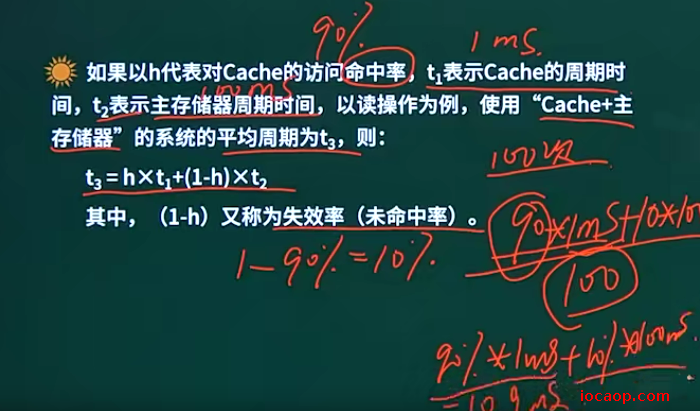 90% 1ms
如果以h代表对Cache的访问命中率，t₁表示Cache的周期时
100ms
间，t₂表示主存储器周期时间，以读操作为例，使用“Cache+主
存储器”的系统的平均周期为t₃，则：
100次
t₃ = h×t₁+(1-h)×t₂
90*1ms+10*100
其中，（1-h）又称为失效率（未命中率）。
1-90%=10%.
100
90%*1ms+10%*100ms
=10.9ms
iocaop.com